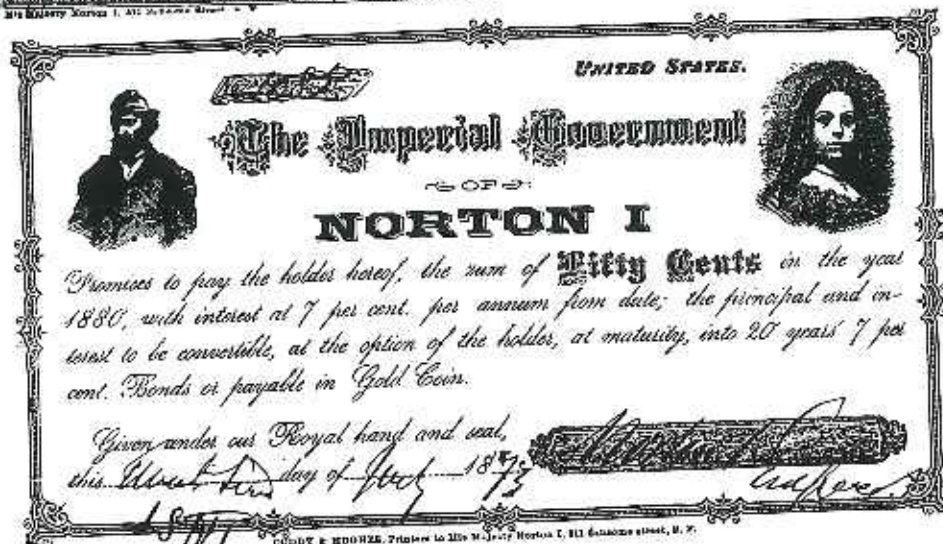 His Majesty Norton I, 511 Sansome Street
UNITED STATES.
The Imperial Government
OF
NORTON I
Promises to pay the holder hereof, the sum of Fifty Cents in the year
1880, with interest at 7 per cent. per annum from date; the principal and in-
terest to be convertible, at the option of the holder, at maturity, into 20 years' 7 per
cent. Bonds or payable in Gold Coin.
Given under our Royal hand and seal,
this day of July 1873
Norton I
Emperor.
CUDDY & HUGHES, Printers to His Majesty Norton I, 511 Sansome street, S. F.